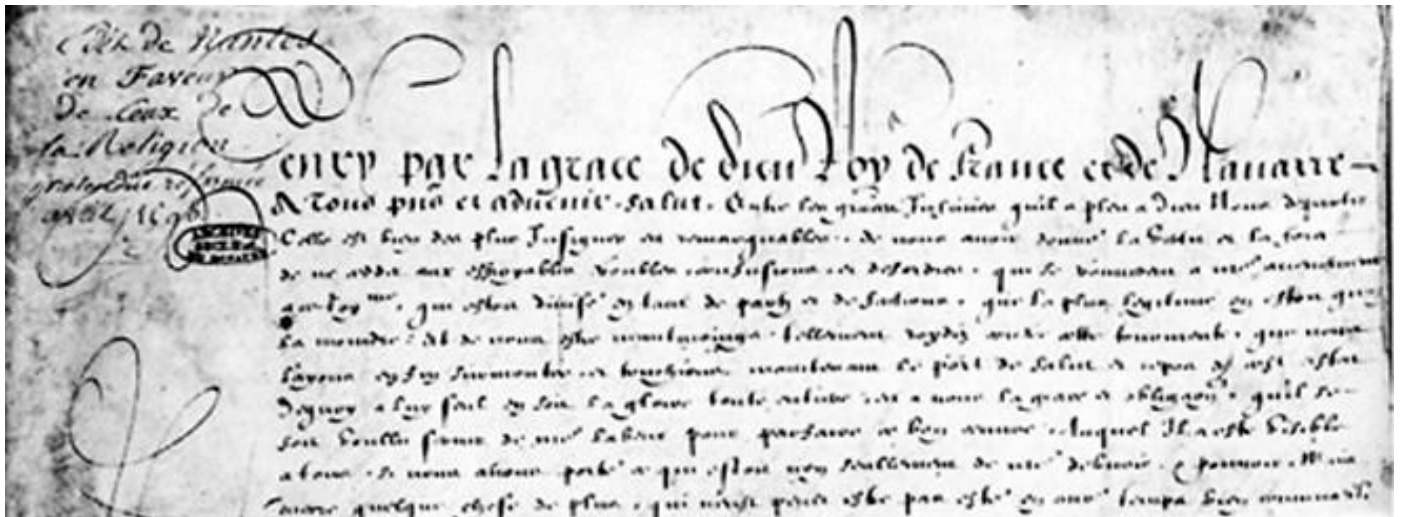 Edit de Nantes
en Faveur
de Ceux de
la Religion
pretendue reformée
avril 1598
ARCHIVES
Henry par la grace de dieu Roy de france et de Navarre
A Tous pns et advenir. Salut. Entre les graces Infinies qu'il a pleu a Dieu Nous departir
Celle est bien des plus Insignes et remarquables. de nous avoir donné la vertu et la force
de ne ceder aux effroyables troubles confusions et desordres. qui se trouverent a nre advenement
a ce Royme. qui estoit divisé en tant de partz et de factions. que la plus legitime en estoit quasi
la moindre. Et de nous estre neantmoings tellement roydiz contre ceste tourmente. que nous
l'ayons enfin surmontee. et touchions maintenant le port de salut et repos de cest estat
Dequoy a luy seul en soit la gloire toute entiere. et a nous la grace et obligaon. qu'il se
soit voullu servir de nre labeur pour parfaire ce bon œuvre. Auquel Il a esté visible
a tous. si nous avons porté ce qui estoit non seullement de nre debvoir. & pouvoir. Mais
encore quelque chose de plus. qui n'eust peut estre pas esté en aure temps bien convenable